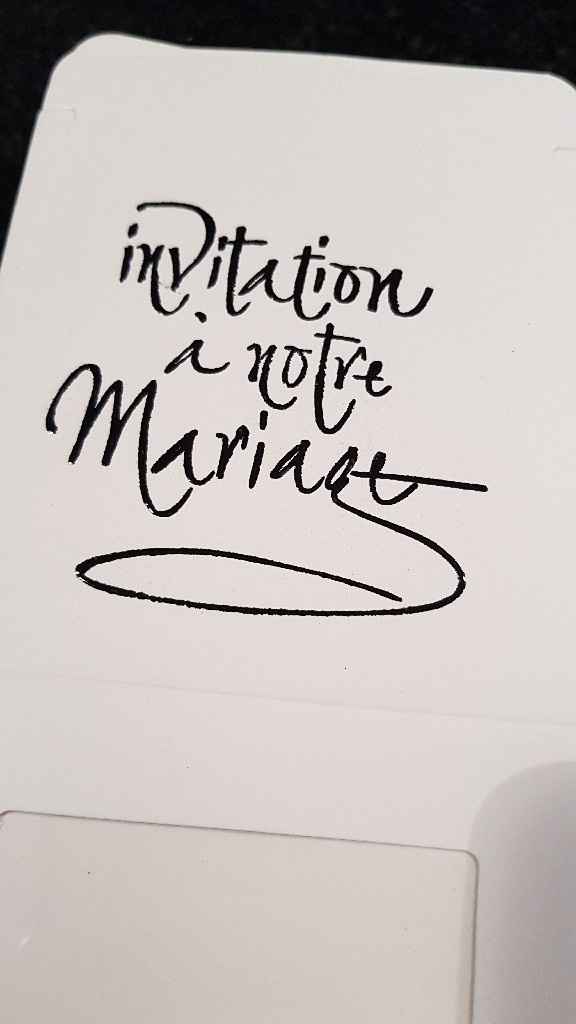 invitation
à notre
Mariage